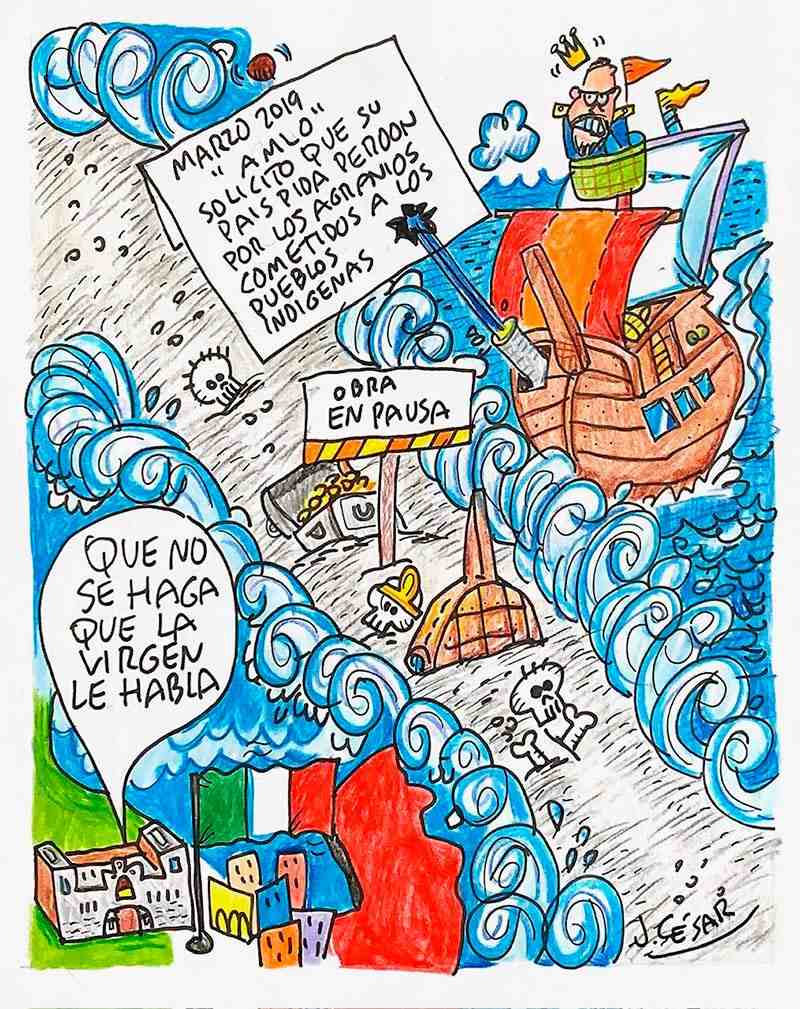 MARZO 2019
"AMLO"
SOLICITO QUE SU
PAIS PIDA PERDON
POR LOS AGRAVIOS
COMETIDOS A LOS
PUEBLOS
INDIGENAS
OBRA
EN PAUSA
QUE NO
SE HAGA
QUE LA
VIRGEN
LE HABLA
J. CÉSAR